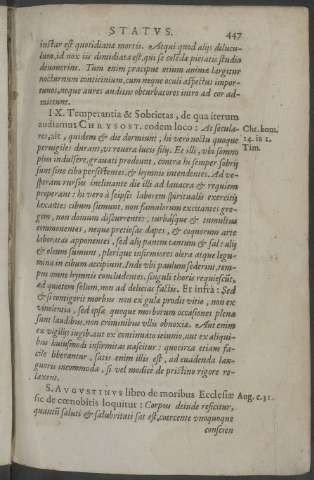 STATVS. 447
instar est quotidiana mortis. Atqui quod alijs dilucu-
lum, id nox iis dimidiata est, qui se caelesti pietatis studio
devoverint. Tum enim praecipue otium animae largitur
nocturnum conticinium, cum neque oculi aspectus impor-
tunos, neque aures auditus obturbatores intro ad cor ad-
mittunt.
IX. Temperantia & Sobrietas, de qua iterum
audiamus CHRYSOST. eodem loco: At secula-
res, ait, quidem & die dormiunt, hi vero noctu quoque
pervigiles durant, vt revera lucis filij. Et illi, vbi somno
plus indulsere, gravati prodeunt, contra hi semper sobrij
sunt sine cibo persistentes & hymnis intendentes. Ad ve-
speram rursus inclinante die illi ad lavacra & requiem
properant: hi vero a seipsis laborem spiritualis exercitij
laxantes cibum sumunt, non famulorum excitantes gre-
gem, non domum discurrentes, turbasque & tumultus
commoventes, neque pretiosas dapes, & coquorum arte
laboratas apponentes, sed alij panem tantum & sal: alij
& oleum sumunt, plerique infirmiores olera atque legu-
mina in cibum accipiunt. Inde vbi paulum sederint, tem-
pus omne hymnis concludentes, singuli thoris requiescunt,
ad quietem solum, non ad delicias factis. Et infrà: Sed
& si contigerit morbus non ex gula prodit vitio, non ex
vinolentia, sed ipsae quoque morborum occasiones plenae
sunt laudibus, non criminibus vllis obnoxiae. Aut enim
ex vigilijs iugib. aut ex continuato ieiunio, aut ex aliqui-
bus huiusmodi infirmitas nascitur: quocirca etiam fa-
cile liberantur. satis enim illis est, ad evadenda lan-
guoris incommoda, si vel modicè de pristino rigore re-
laxent.
S. AVGVSTINVS libro de moribus Ecclesiae
sic de coenobitis loquitur: Corpus deinde reficitur,
quantum saluti & salubritati sat est, coercente vnoquoque
conscien
Chr. hom.
14. in 1.
Tim.
Aug. c. 31.